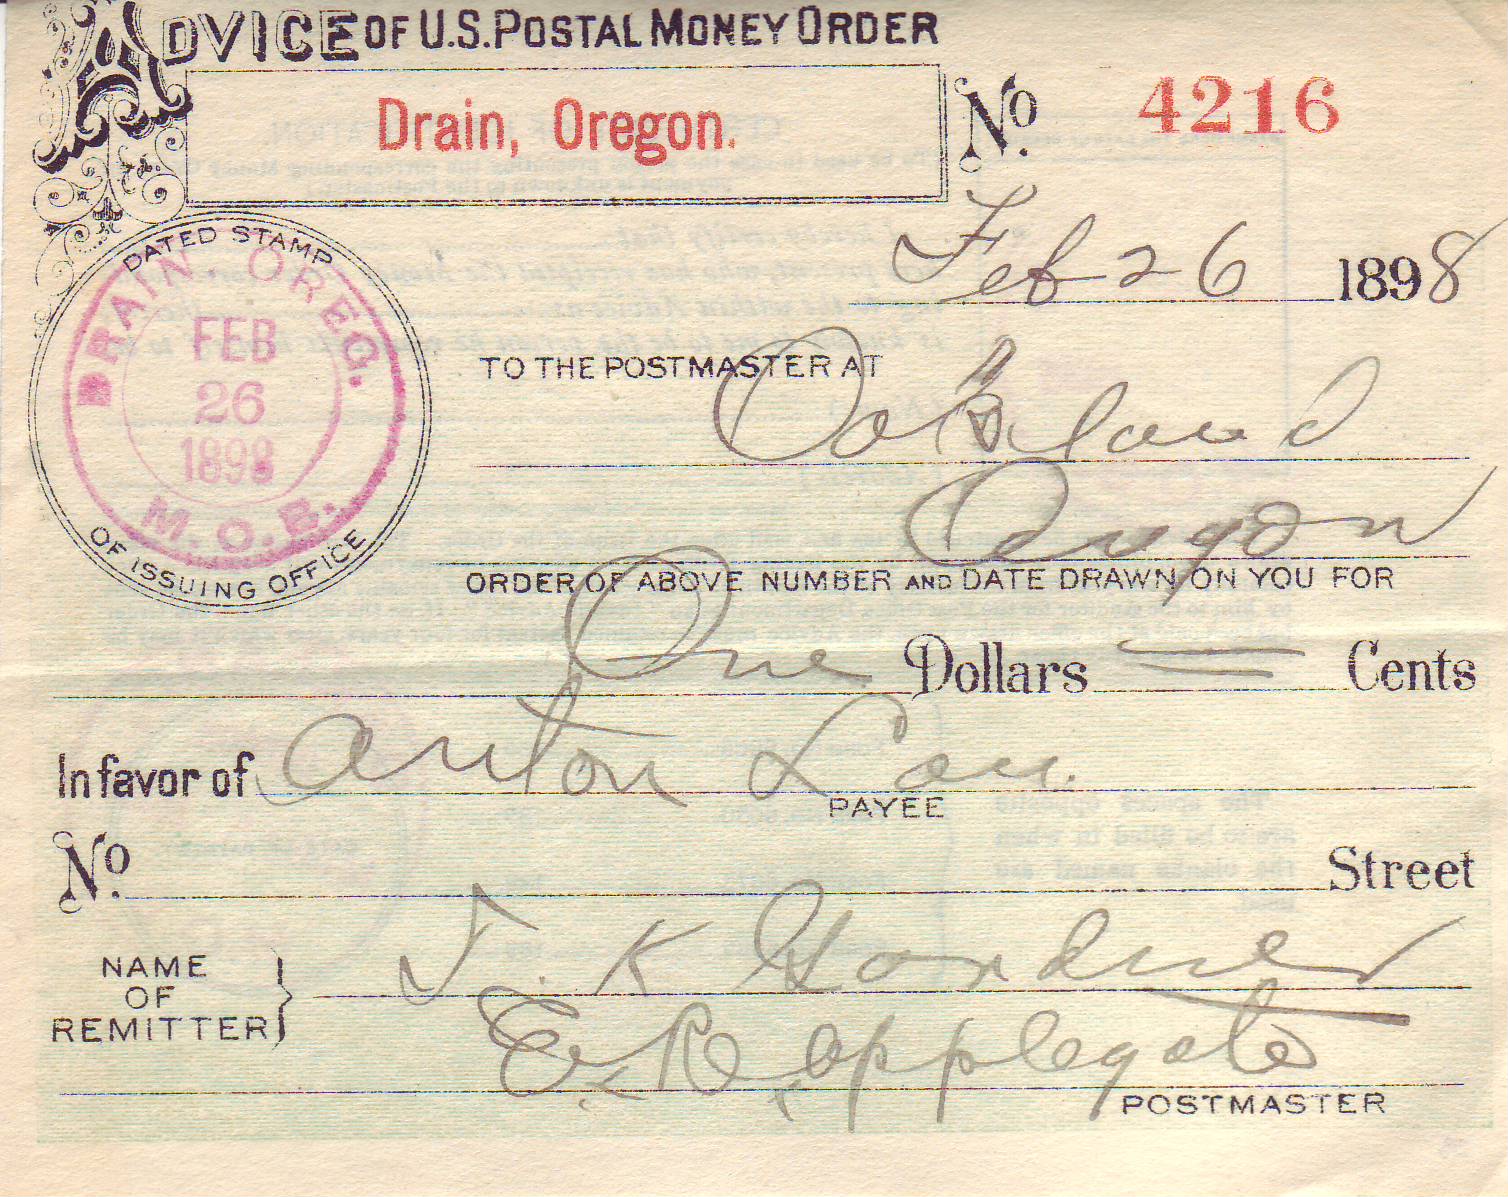 ADVICE OF U.S. POSTAL MONEY ORDER
Drain, Oregon.
No. 4216
Feb 26 1898
DATED STAMP
DRAIN OREG.
FEB
26
1898
M.O.B.
OF ISSUING OFFICE
TO THE POSTMASTER AT
Oakland
Oregon
ORDER OF ABOVE NUMBER AND DATE DRAWN ON YOU FOR
One Dollars = Cents
In favor of Anton Lou.
PAYEE
No. Street
NAME OF REMITTER } J. K. Gardner
E. R. Applegate
POSTMASTER